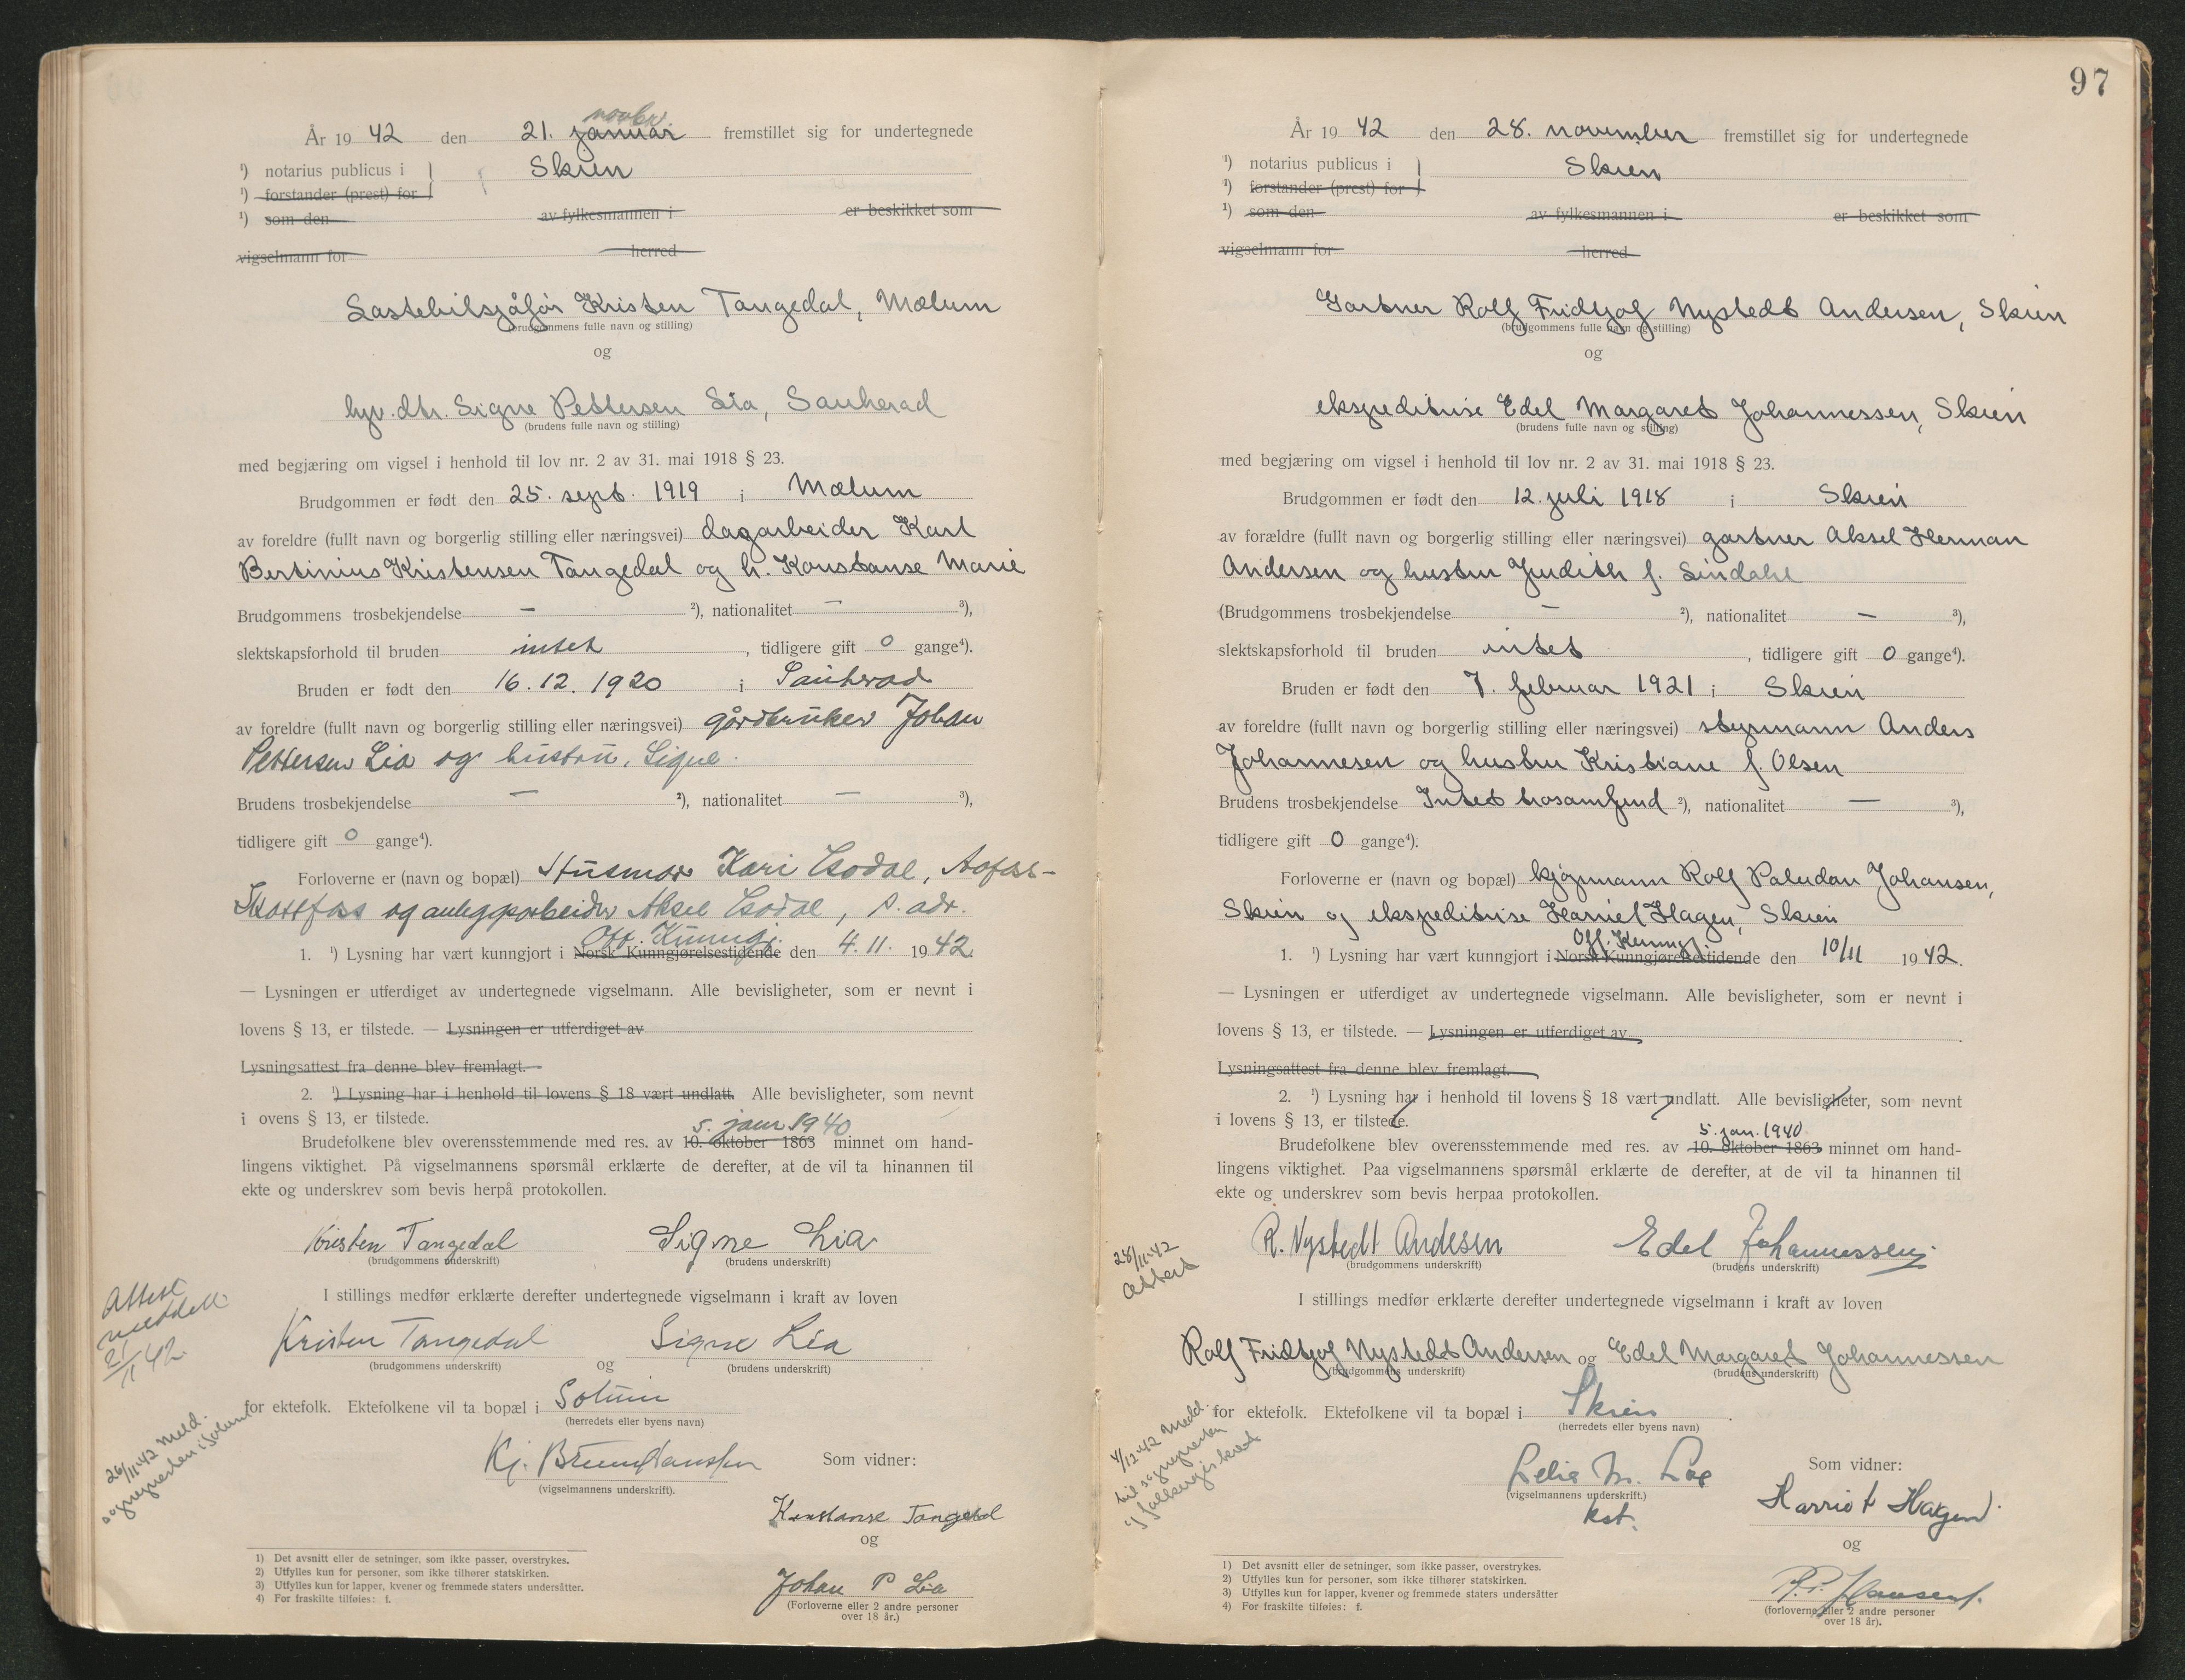 År 19 42 den 21. januar novbr. fremstillet sig for undertegnede
¹) notarius publicus i } Skien
¹) forstander (prest) for
¹) som den av fylkesmannen i er beskikket som
vigselmann for herred
Lastebilsjåfør Kristen Tangedal, Mælum
(brudgommens fulle navn og stilling)
og
hjv. dtr. Signe Pettersen Lia, Sauherad
(brudens fulle navn og stilling)
med begjæring om vigsel i henhold til lov nr. 2 av 31. mai 1918 § 23.
Brudgommen er født den 25. sept. 1919 i Mælum
av foreldre (fullt navn og borgerlig stilling eller næringsvei) dagarbeider Karl
Bertinius Kristensen Tangedal og h. Konstanse Marie
Brudgommens trosbekjendelse — ²), nationalitet — ³),
slektskapsforhold til bruden intet, tidligere gift 0 gange⁴).
Bruden er født den 16.12.1920 i Sauherad
av foreldre (fullt navn og borgerlig stilling eller næringsvei) gårdbruker Johan
Pettersen Lia og hustru, Signe.
Brudens trosbekjendelse — ²), nationalitet — ³),
tidligere gift 0 gange⁴).
Forloverne er (navn og bopæl) Husmor Kari
Skotfoss og anleggsarbeider Aksel, s. adr.
Off. Kunngj.
1. ¹) Lysning har vært kunngjort i Norsk Kunngjørelsestidende den 4.11. 1942.
— Lysningen er utferdiget av undertegnede vigselmann. Alle bevisligheter, som er nevnt i
lovens § 13, er tilstede. — Lysningen er utferdiget av
Lysningsattest fra denne blev fremlagt.
2. ¹) Lysning har i henhold til lovens § 18 vært undlatt. Alle bevisligheter, som nevnt
i ovens § 13, er tilstede.
5. janr 1940
Brudefolkene blev overensstemmende med res. av 10. oktober 1863 minnet om hand-
lingens viktighet. På vigselmannens spørsmål erklærte de derefter, at de vil ta hinannen til
ekte og underskrev som bevis herpå protokollen.
Kristen Tangedal Signe Lia
(brudgommens underskrift) (brudens underskrift)
I stillings medfør erklærte derefter undertegnede vigselmann i kraft av loven
Attest
meddelt
21/11 42
Kristen Tangedal og Signe Lia
(brudgommens underskrift) (brudens underskrift)
for ektefolk. Ektefolkene vil ta bopæl i Solum
(herredets eller byens navn)
26/11-42 Meld.
sognepresten i Solum
Kj. Bruun Hanssen Som vidner:
(vigselmannens underskrift).
Konstanse Tangedal
og
Johan P Lia
(Forloverne eller 2 andre personer
over 18 år.)
1) Det avsnitt eller de setninger, som ikke passer, overstrykes.
2) Utfylles kun for personer, som ikke tilhører statskirken.
3) Utfylles kun for lapper, kvener og fremmede staters undersåtter.
4) For fraskilte tilføies: f.
97
År 19 42 den 28. november fremstillet sig for undertegnede
¹) notarius publicus i } Skien
¹) forstander (prest) for
¹) som den av fylkesmannen i er beskikket som
vigselmann for herred
Gartner Rolf Fridtjof Nystedt Andersen, Skien
(brudgommens fulle navn og stilling)
og
ekspeditrise Edel Margaret Johannessen, Skien
(brudens fulle navn og stilling)
med begjæring om vigsel i henhold til lov nr. 2 av 31. mai 1918 § 23.
Brudgommen er født den 12. juli 1918 i Skien
av forældre (fullt navn og borgerlig stilling eller næringsvei) gartner Aksel Herman
Andersen og hustru Judith f. Lindahl
(Brudgommens trosbekjendelse — ²), nationalitet — ³),
slektskapsforhold til bruden intet, tidligere gift 0 gange⁴).
Bruden er født den 7. februar 1921 i Skien
av foreldre (fullt navn og borgerlig stilling eller næringsvei) styrmann Anders
Johannesen og hustru Kristiane f. Olsen
Brudens trosbekjendelse Intet trosamfund ²), nationalitet — ³),
tidligere gift 0 gange⁴).
Forloverne er (navn og bopæl) kjøpmann Rolf Paludan Johansen,
Skien og ekspeditrise Harriet Hagen, Skien
Off. Kunngj.
1. ¹) Lysning har vært kunngjort i Norsk Kunngjørelsestidende den 10/11 1942.
— Lysningen er utferdiget av undertegnede vigselmann. Alle bevisligheter, som er nevnt i
lovens § 13, er tilstede. — Lysningen er utferdiget av
Lysningsattest fra denne blev fremlagt.
2. ¹) Lysning har i henhold til lovens § 18 vært undlatt. Alle bevisligheter, som nevnt
i lovens § 13, er tilstede.
5. jan. 1940
Brudefolkene blev overensstemmende med res. av 10. oktober 1863 minnet om hand-
lingens viktighet. Paa vigselmannens spørsmål erklærte de derefter, at de vil ta hinannen til
ekte og underskrev som bevis herpaa protokollen.
28/11-42
Attest
R. Nystedt Andesen Edel Johannessen
(brudgommens underskrift) (brudens underskrift)
I stillings medfør erklærte derefter undertegnede vigselmann i kraft av loven
Rolf Fridtjof Nystedt Andersen og Edel Margaret Johannessen
(brudgommens underskrift) (brudens underskrift)
for ektefolk. Ektefolkene vil ta bopæl i Skien.
(herredets eller byens navn)
4/12-42 Medd.
til sognepresten
folkeregisteret
Som vidner:
(vigselmannens underskrift.)
kst.
Harriet Hagen
og
(forloverne eller 2 andre personer
over 18 år).
1) Det avsnitt eller de setninger, som ikke passer, overstrykes.
2) Utfylles kun for personer, som ikke tilhører statskirken.
3) Utfylles kun for lapper, kvener og fremmede staters undersåtter
4) For fraskilte tilføies: f.